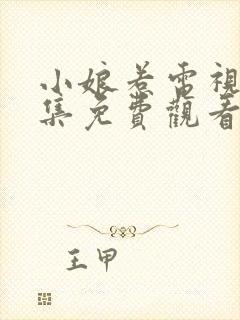 小娘惹電視
集免費觀看
王甲